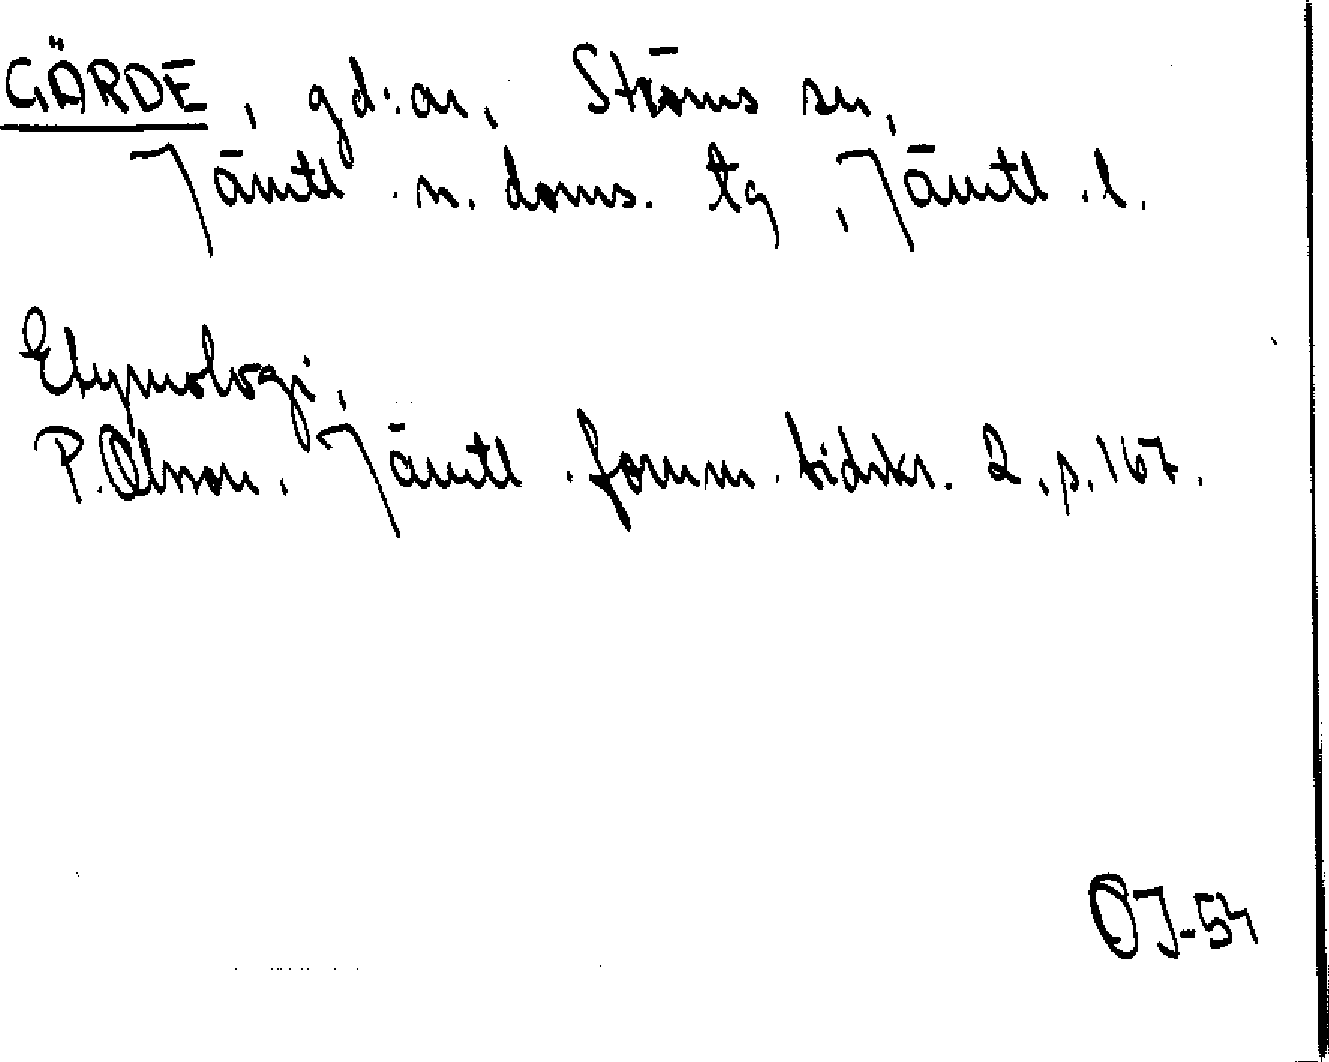 GÄRDE, gd:ar, Ströms sn,
Jämtl. n. doms. tg, Jämtl. l.
Etymologi,
P. Olsson. Jämtl. fornm. tidskr. 2, p. 167.
OJ-54